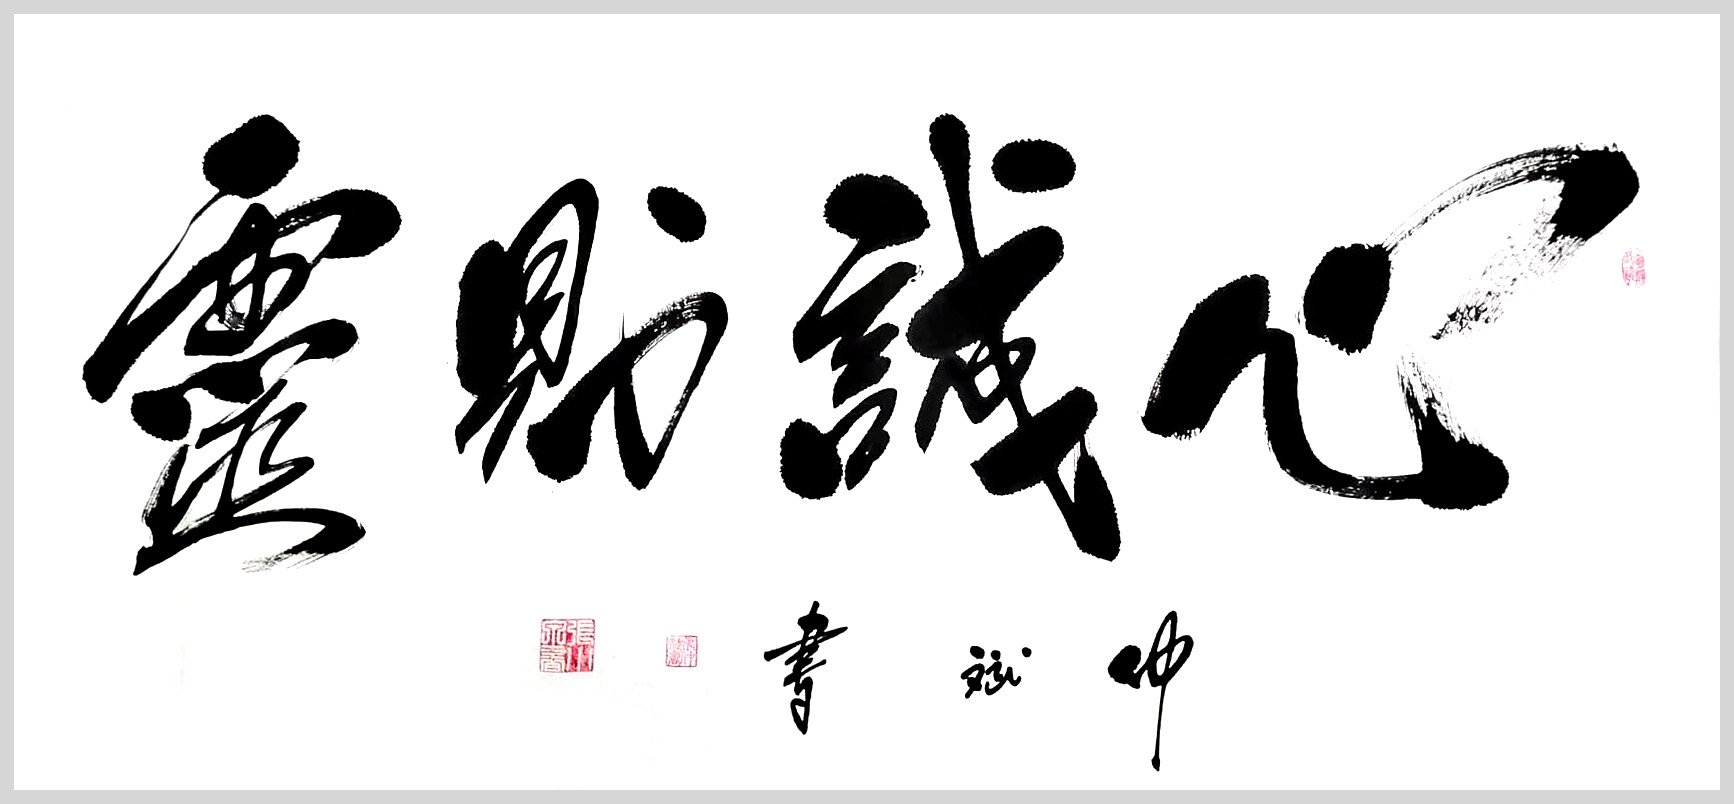 心誠則靈
仲斌書